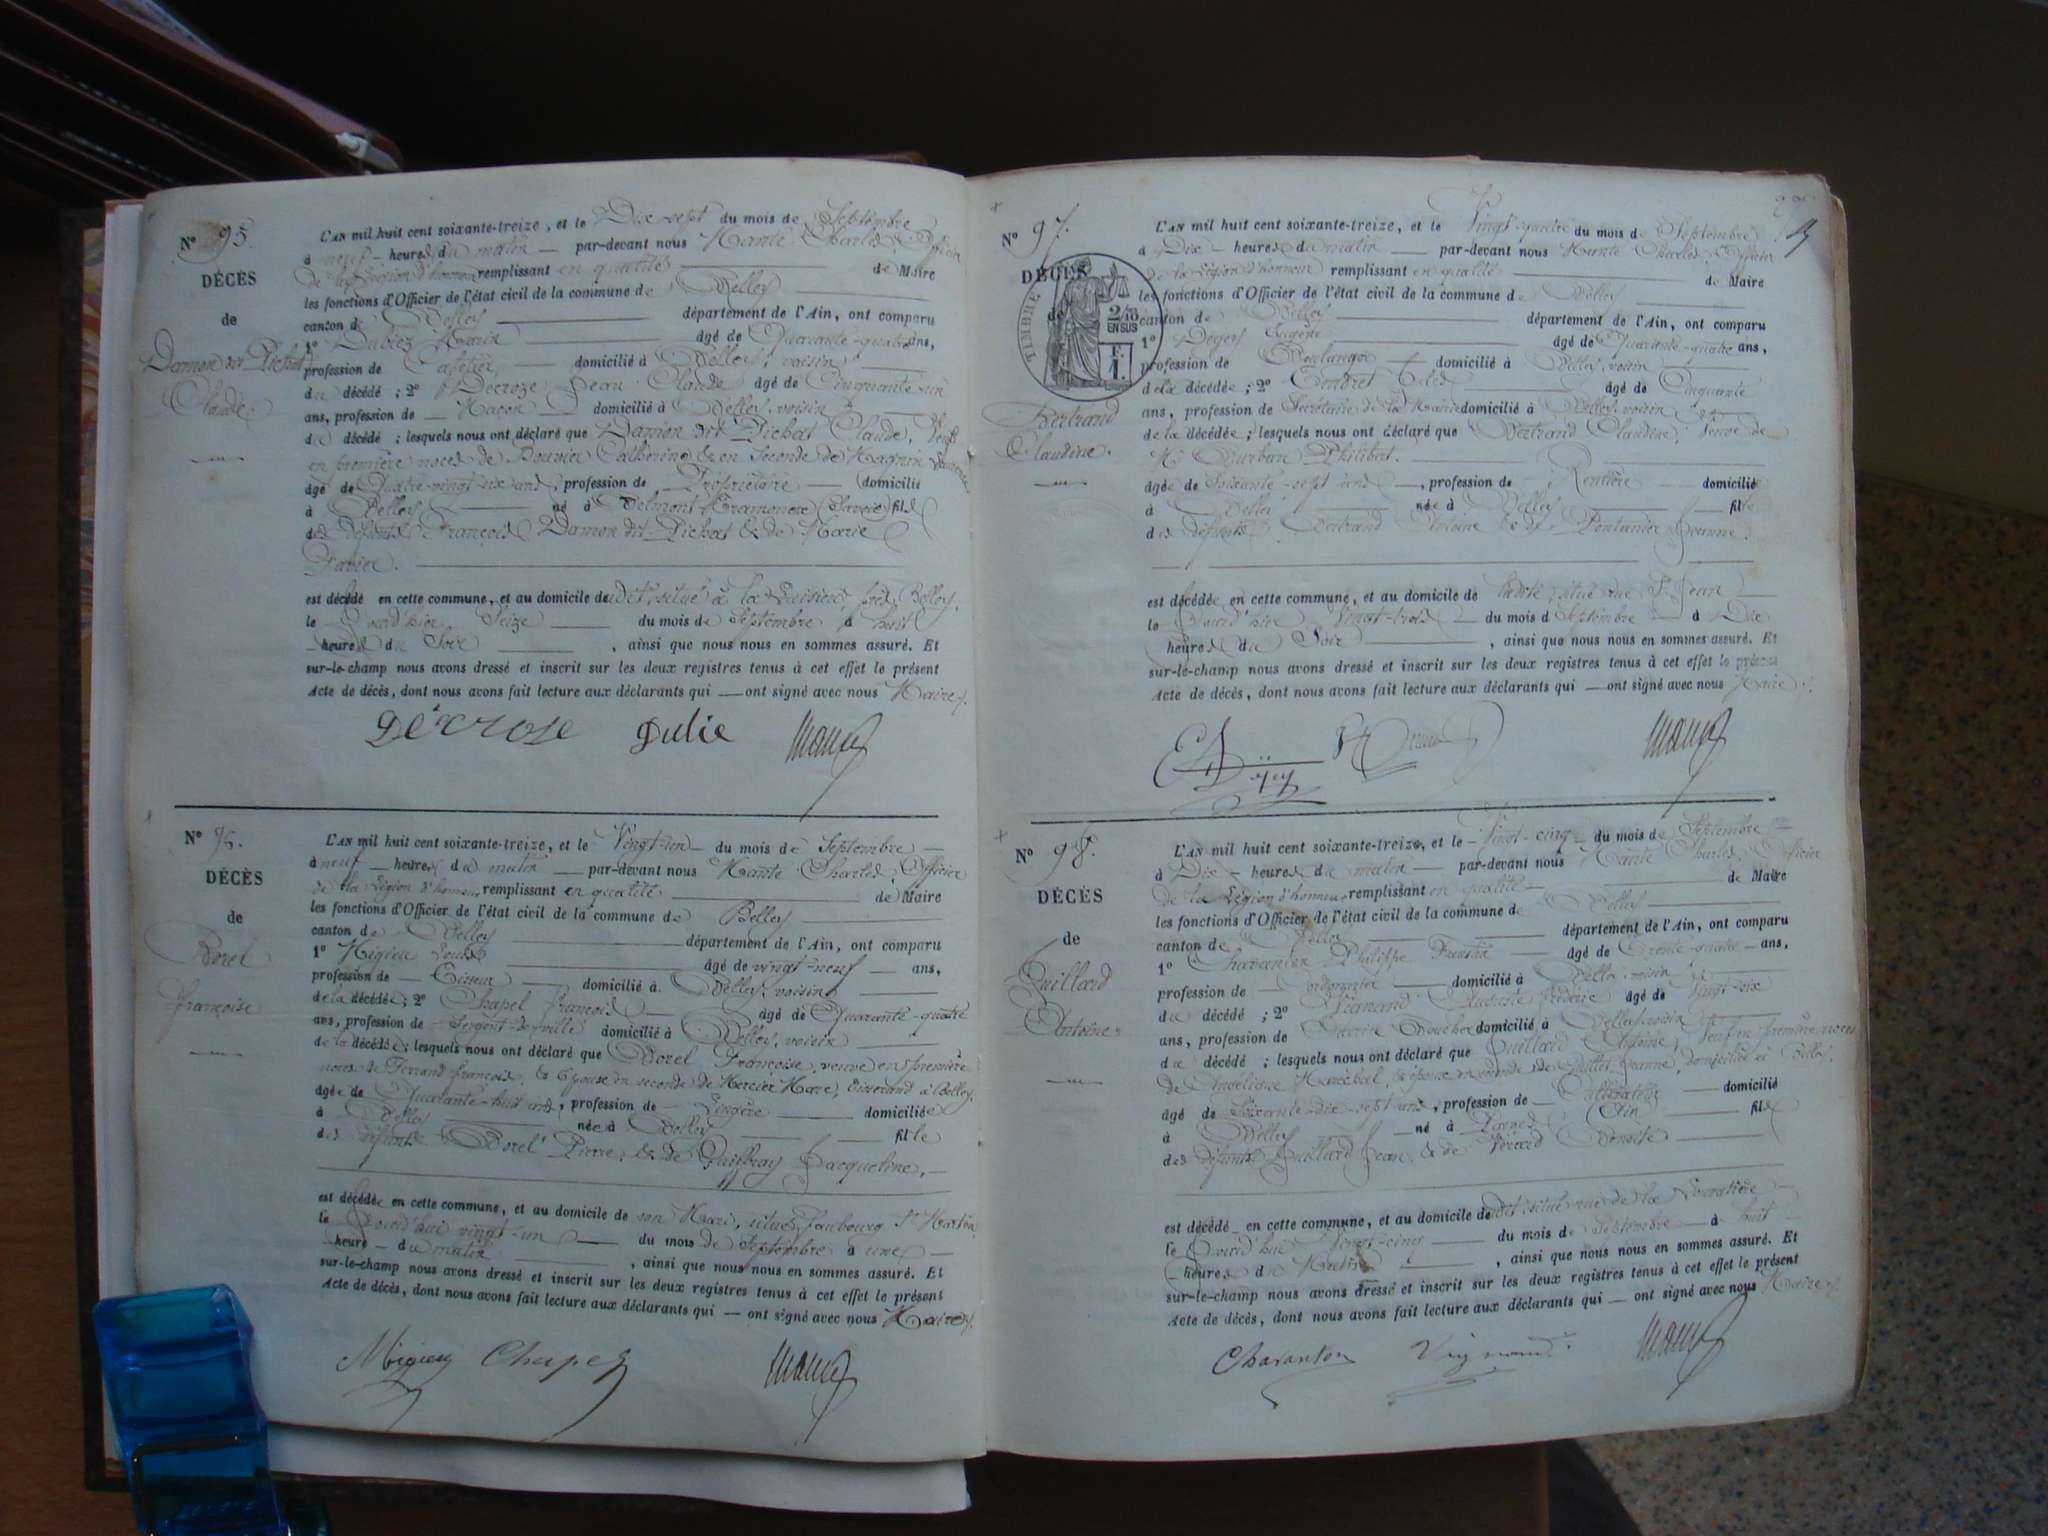 N° 95.
DÉCÈS
de
Damon dit Pichat
Claude.
L'AN mil huit cent soixante-treize, et le Dix sept du mois de Septembre
à neuf heures du matin par-devant nous Charles Officier
de la Légion d'honneur remplissant en qualité de Maire
les fonctions d'Officier de l'état civil de la commune de Belley
canton de Belley département de l'Ain, ont comparu
1° Marin âgé de Quarante-quatre ans,
profession de Cafetier domicilié à Belley, voisin
du décédé ; 2° Décroze Jean Claude âgé de Cinquante-un
ans, profession de Maçon domicilié à Belley, voisin
du décédé ; lesquels nous ont déclaré que Damon dit Pichat Claude, Veuf
en première noces de Bouvier Catherine & en Seconde de Magnin
âgé de Quatre-vingt-six ans, profession de Propriétaire domicilié
à Belley né à Belmont-Tramonex (Savoie) fils
des défunts François Damon dit Pichat & de Marie
est décédé en cette commune, et au domicile dudit, situé à la près Belley,
le Jourd'hier Seize du mois de Septembre à huit
heures du Soir, ainsi que nous nous en sommes assuré. Et
sur-le-champ nous avons dressé et inscrit sur les deux registres tenus à cet effet le présent
Acte de décès, dont nous avons fait lecture aux déclarants qui — ont signé avec nous Maire.
N° 96.
DÉCÈS
de
Borel
Françoise
L'AN mil huit cent soixante-treize, et le Vingt-un du mois de Septembre
à neuf heures du matin par-devant nous Charles Officier
de la Légion d'honneur remplissant en qualité de Maire
les fonctions d'Officier de l'état civil de la commune de Belley
canton de Belley département de l'Ain, ont comparu
1° Migieu Louis âgé de vingt-neuf ans,
profession de domicilié à Belley, voisin
de la décédée ; 2° Chapel François âgé de Quarante-quatre
ans, profession de Sergent de ville domicilié à Belley, voisin
de la décédée ; lesquels nous ont déclaré que Borel Françoise, veuve en première
noces de Ferrand François, & Epouse en seconde de Mercier Marc, à Belley,
âgée de Quarante-huit ans, profession de Lingère domiciliée
à Belley née à Belley fille
des défunts Borel Pierre, & de Jacqueline,
est décédée en cette commune, et au domicile de son Mari, situé, faubourg St Martin
le Jourd'hui vingt-un du mois de Septembre à une
heure du matin, ainsi que nous nous en sommes assuré. Et
sur-le-champ nous avons dressé et inscrit sur les deux registres tenus à cet effet le présent
Acte de décès, dont nous avons fait lecture aux déclarants qui — ont signé avec nous Maire.
N° 97.
DÉCÈS
de
TIMBRE
2/10
EN SUS
F.
1.
Bertrand
Claudine.
L'AN mil huit cent soixante-treize, et le Vingt-quatre du mois de Septembre
à Dix heures du matin par-devant nous Charles Officier
de la Légion d'honneur remplissant en qualité de Maire
les fonctions d'Officier de l'état civil de la commune de Belley
canton de Belley département de l'Ain, ont comparu
1° Eugène âgé de Quarante-quatre ans,
profession de Boulanger domicilié à Belley, voisin
de la décédée ; 2° âgé de Cinquante
ans, profession de Secrétaire de la Mairie domicilié à Belley, voisin
de la décédée ; lesquels nous ont déclaré que Bertrand Claudine, Veuve de
Mr Durbern Philibert.
âgée de Soixante-sept ans, profession de Rentière domiciliée
à Belley née à Belley fille
des défunts Bertrand Antoine & de Jeanne.
est décédée en cette commune, et au domicile de ladite, situé rue St Jean
le Jourd'hier Vingt-trois du mois de Septembre à Dix
heures du Soir, ainsi que nous nous en sommes assuré. Et
sur-le-champ nous avons dressé et inscrit sur les deux registres tenus à cet effet le présent
Acte de décès, dont nous avons fait lecture aux déclarants qui — ont signé avec nous Maire.
N° 98.
DÉCÈS
de
Juillard
Antoine
L'AN mil huit cent soixante-treize, et le Vingt-cinq du mois de Septembre
à Dix heures du matin par-devant nous Charles Officier
de la Légion d'honneur remplissant en qualité de Maire
les fonctions d'Officier de l'état civil de la commune de Belley
canton de Belley département de l'Ain, ont comparu
1° Philippe âgé de Trente-quatre ans,
profession de Cordonnier domicilié à Belley, voisin
du décédé ; 2° âgé de Vingt-six
ans, profession de Boucher domicilié à Belley, voisin
du décédé ; lesquels nous ont déclaré que Juillard Antoine, Veuf en première noces
de Angélique Maréchal, & époux en seconde de Jeanne, domiciliée à Belley,
âgé de Soixante-dix-sept ans, profession de Cultivateur domicilié
à Belley né à (Ain) fils
des défunts Juillard Jean, & de Benoite
est décédé en cette commune, et au domicile dudit, situé rue de la
le Jourd'hui Vingt-cinq du mois de Septembre à huit
heures du Matin, ainsi que nous nous en sommes assuré. Et
sur-le-champ nous avons dressé et inscrit sur les deux registres tenus à cet effet le présent
Acte de décès, dont nous avons fait lecture aux déclarants qui — ont signé avec nous Maire.